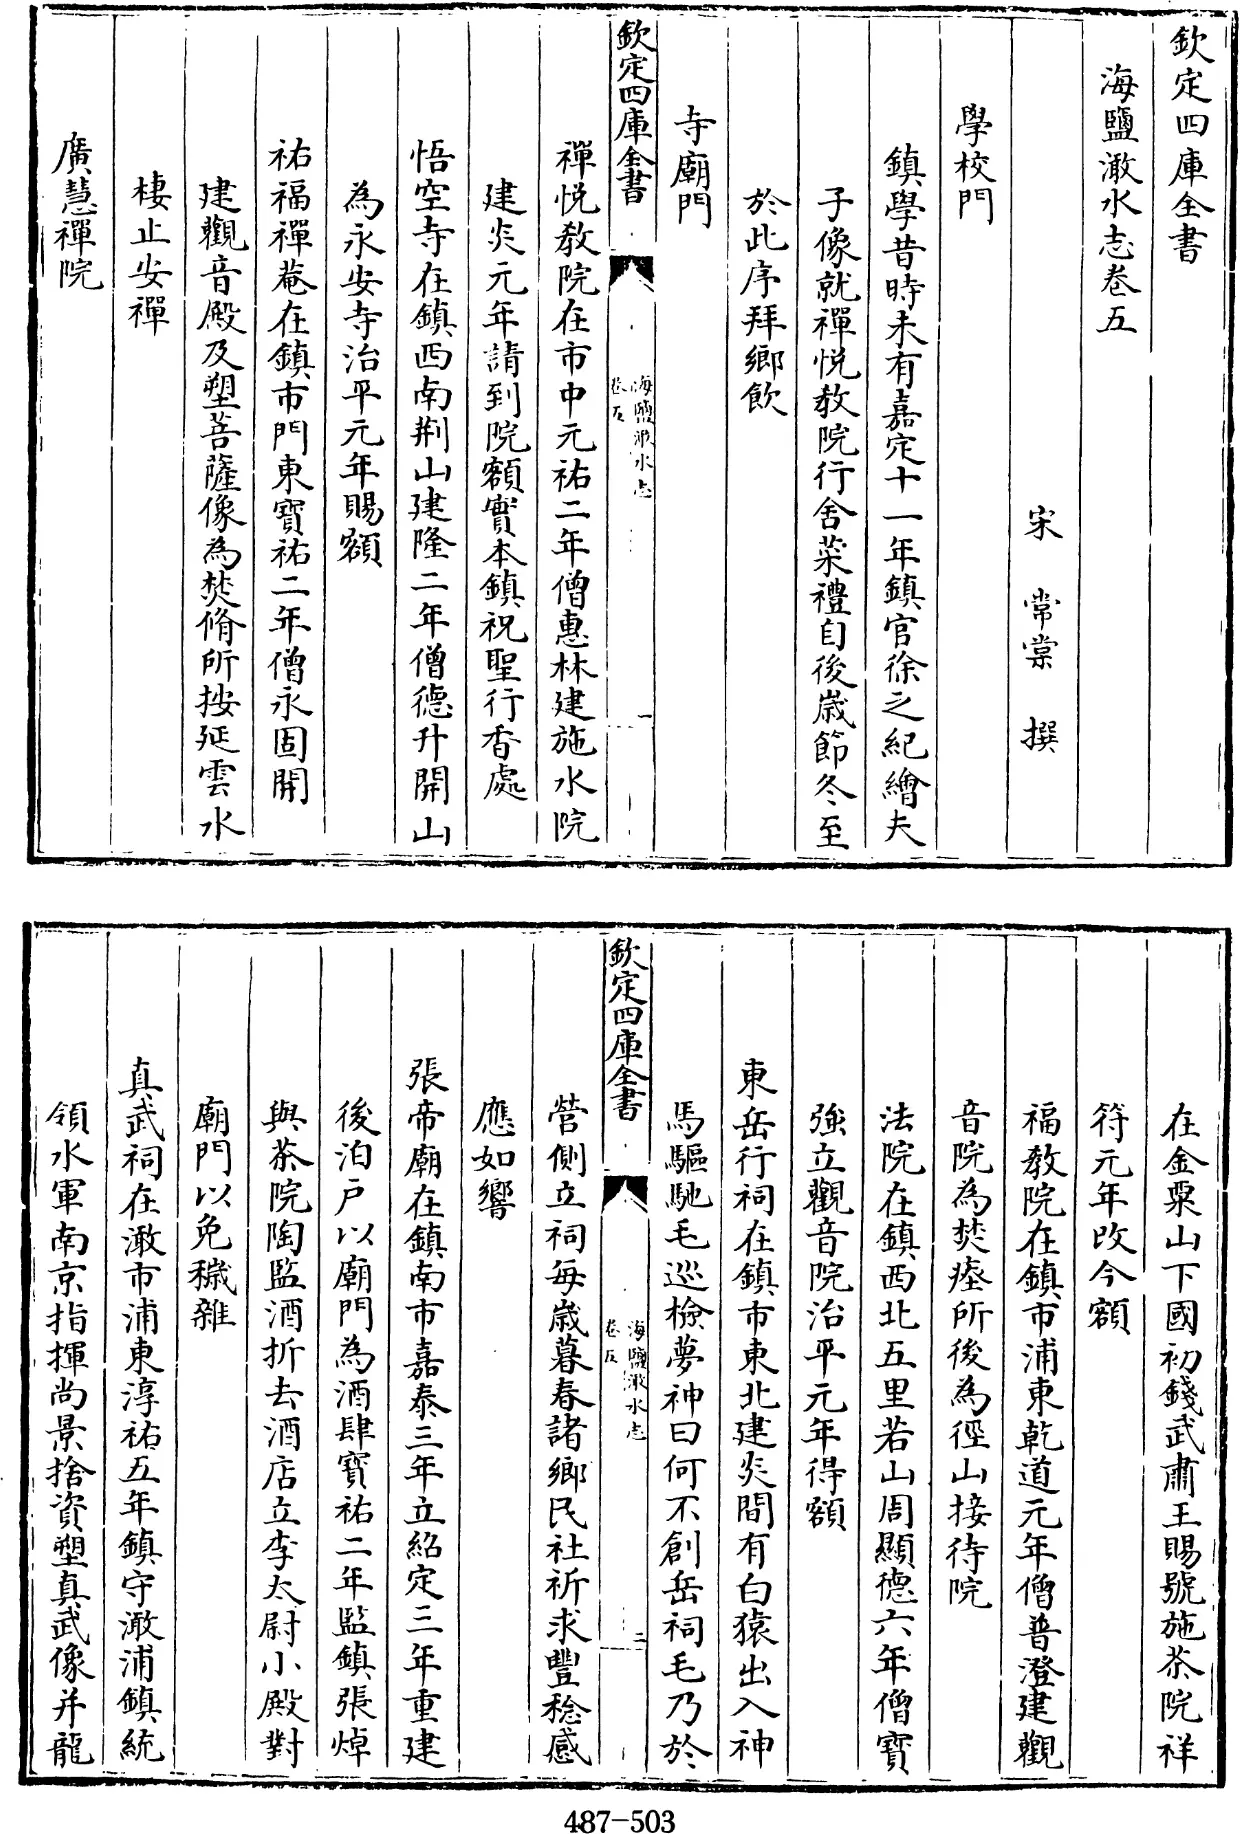 欽定四庫全書
海鹽澉水志卷五
宋 常棠 撰
學校門
鎮學昔時未有嘉定十一年鎮官徐之紀繪夫
子像就禪悅教院行舍菜禮自後歲節冬至
於此序拜鄉飲
寺廟門
欽定四庫全書
海鹽澉水志
卷五
一
禪悅教院在市中元祐二年僧惠林建施水院
建炎元年請到院額實本鎮祝聖行香處
悟空寺在鎮西南荆山建隆二年僧德升開山
為永安寺治平元年賜額
祐福禪菴在鎮市門東寶祐二年僧永固開
建觀音殿及塑菩薩像為焚脩所按延雲水
棲止安禪
廣慧禪院
在金粟山下國初錢武肅王賜號施茶院祥
符元年改今額
福教院在鎮市浦東乾道元年僧普澄建觀
音院為焚瘞所後為徑山接待院
法院在鎮西北五里若山周顯德六年僧寶
強立觀音院治平元年得額
東岳行祠在鎮市東北建炎間有白猿出入神
馬驅馳毛巡檢夢神曰何不創岳祠毛乃於
欽定四庫全書
海鹽澉水志
卷五
二
營側立祠每歲暮春諸鄉民社祈求豐稔感
應如響
張帝廟在鎮南市嘉泰三年立紹定三年重建
後泊戶以廟門為酒肆寶祐二年監鎮張焯
與茶院陶監酒折去酒店立李太尉小殿對
廟門以免穢雜
真武祠在澉市浦東淳祐五年鎮守澉浦鎮統
領水軍南京指揮尚景捨資塑真武像并龍
487-503